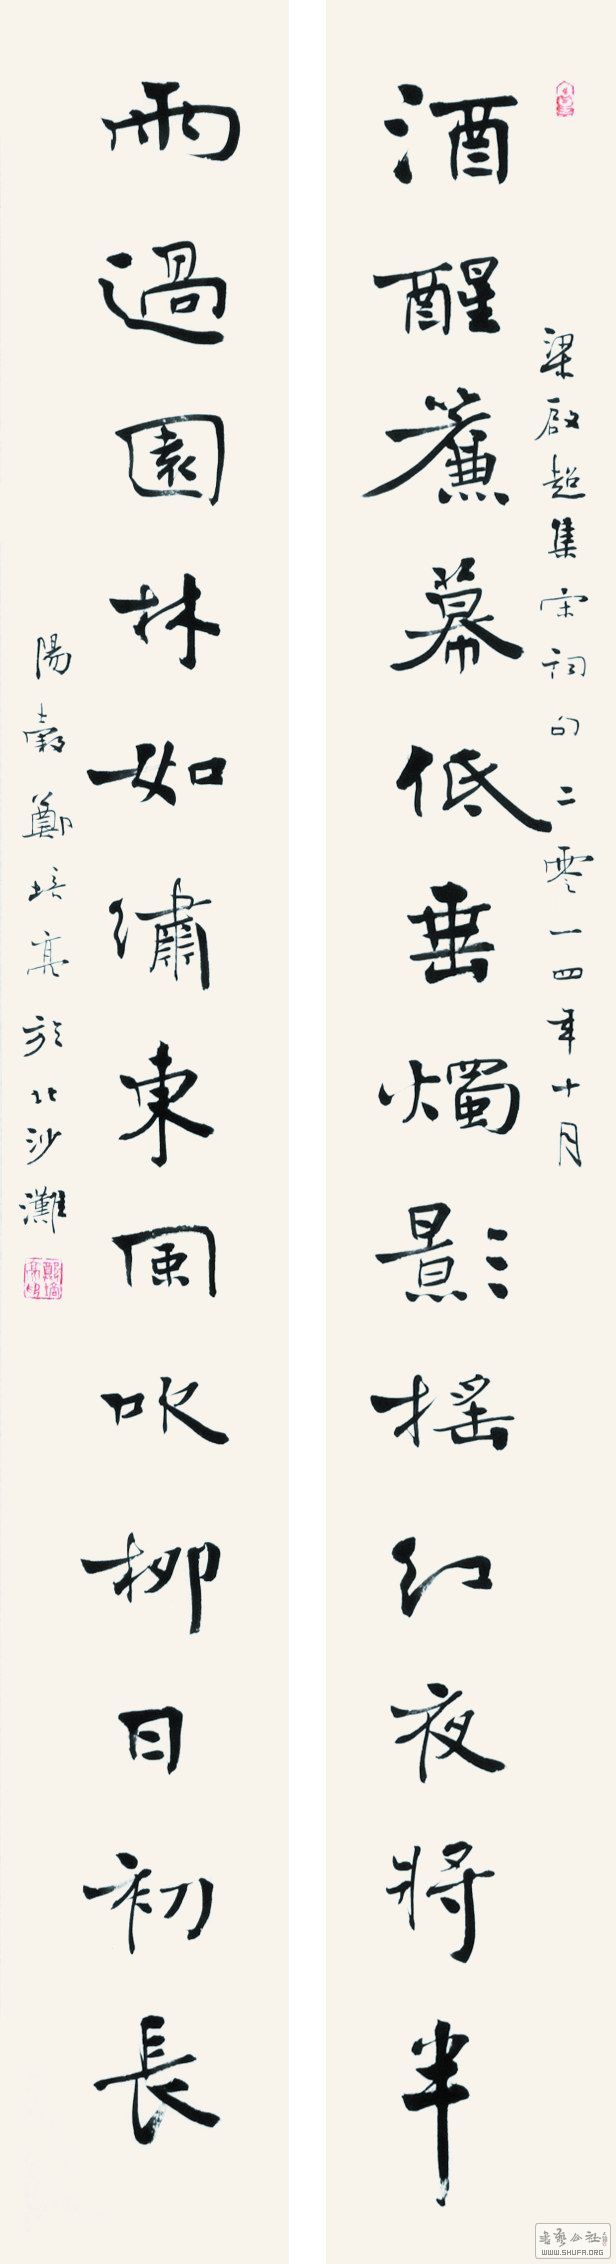 酒醒簾幕低垂燭影摇红夜將半
梁啟超集宋詞句二零一四年十月
雨過園林如繡東風吹柳日初長
陽穀鄭培亮於北沙灘
書藝公社
WWW.SHUFA.ORG